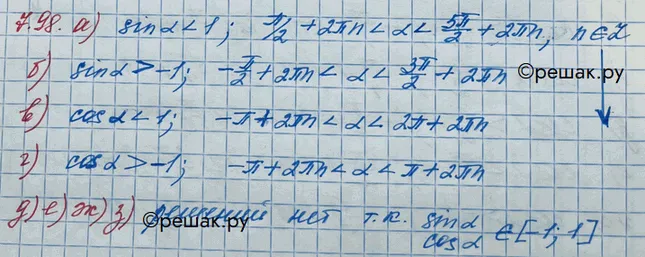 7.98. а) sinα < 1; π/2 + 2πn < α < 5π/2 + 2πn, n∈Z
б) sinα > -1; -π/2 + 2πn < α < 3π/2 + 2πn ©решак.ру
в) cosα < 1; -π + 2πn < α < 2π + 2πn
г) cosα > -1; -π + 2πn < α < π + 2πn
д) е) ж) з) решений нет т.к. sinα cosα ∈ [-1; 1]
©решак.ру